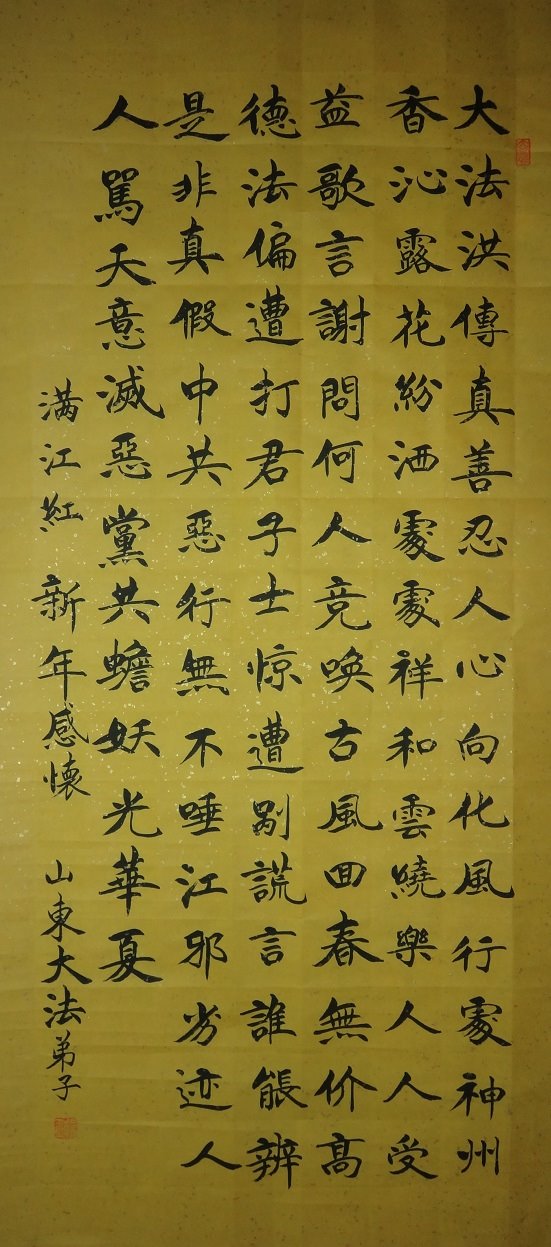 大法洪傳真善忍人心向化風行處神州
香沁露花紛洒處處祥和雲繞樂人人受
益歌言謝問何人竞唤古風回春無价高
德法偏遭打君子士惊遭剐謊言誰能辨
是非真假中共惡行無不唾江邪劣迹人
人駡天意滅惡黨共蟾妖光華夏
满江紅 新年感懷 山東大法弟子